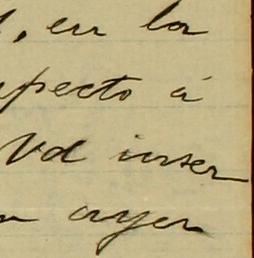 , en la
specto á
Vd inser
ayer